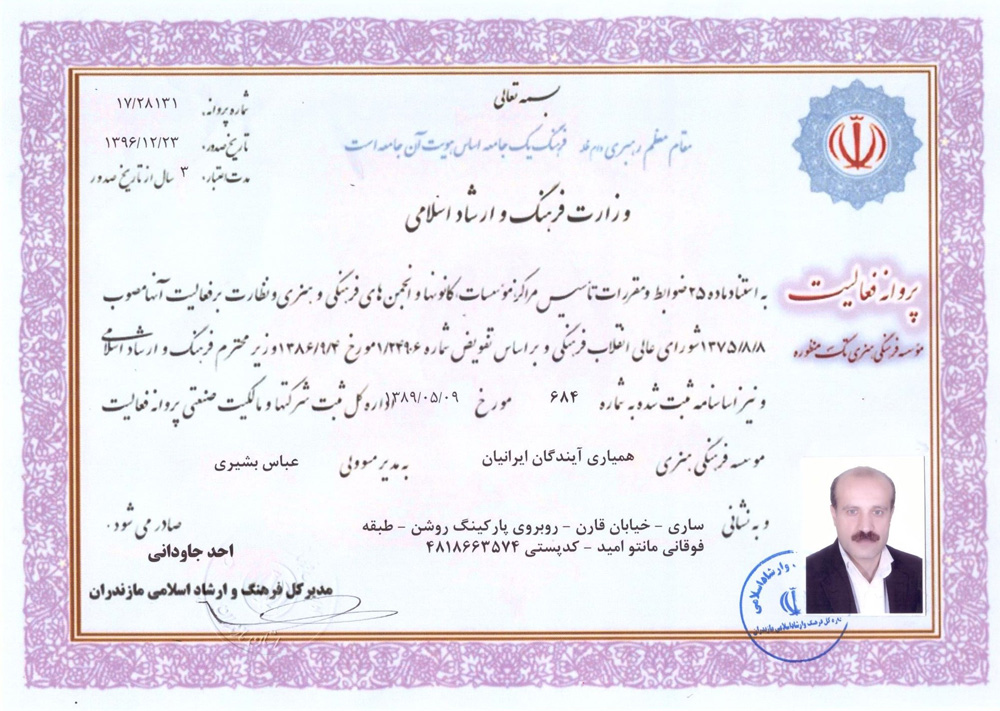 بسمه تعالی
شماره پروانه: ۱۷/۲۸۱۳۱
تاریخ صدور: ۱۳۹۶/۱۲/۲۳
مدت اعتبار: ۳ سال از تاریخ صدور
مقام معظم رهبری فرهنگ یک جامعه اساس هویت آن جامعه است
وزارت فرهنگ و ارشاد اسلامی
پروانه فعالیت
مؤسسه فرهنگی هنری تک منظوره
به استناد ماده ۲۵ ضوابط و مقررات تأسیس مراکز، مؤسسات، کانونها و انجمن های فرهنگی و هنری و نظارت بر فعالیت آنها مصوب
۱۳۷۵/۸/۸ شورای عالی انقلاب فرهنگی و بر اساس تفویض شماره ۱/۲۴۹۰۶ مورخ ۱۳۸۶/۹/۴ وزیر محترم فرهنگ و ارشاد اسلامی
و نیز اساسنامه ثبت شده به شماره ۶۸۴ مورخ ۱۳۸۹/۰۵/۰۹ اداره کل ثبت شرکتها و مالکیت صنعتی پروانه فعالیت
موسسه فرهنگی هنری همیاری آیندگان ایرانیان به مدیر مسوولی عباس بشیری
و به نشانی ساری - خیابان قارن - روبروی پارکینگ روشن - طبقه
فوقانی مانتو امید - کدپستی ۴۸۱۸۶۶۳۵۷۴
صادر می شود.
احد جاودانی
مدیر کل فرهنگ و ارشاد اسلامی مازندران
وارشاد اسلامی
اداره کل فرهنگ وارشاد اسلامی مازندران